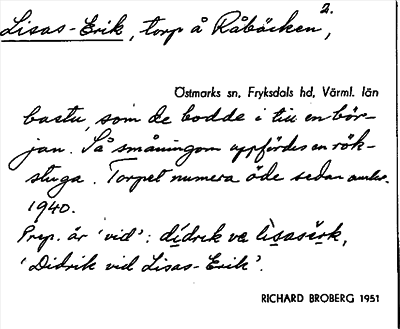 Lisas-Erik, torp å Råbäcken 2.,
Östmarks sn, Fryksdals hd, Värml. län
bastu, som de bodde i till en bör-
jan. Så småningom uppfördes en rök-
stuga. Torpet numera öde sedan omkr.
1940.
Prep. är 'vid': dídrik ve lìsasæ̀rk,
'Didrik vid Lisas-Erik'.
RICHARD BROBERG 1951